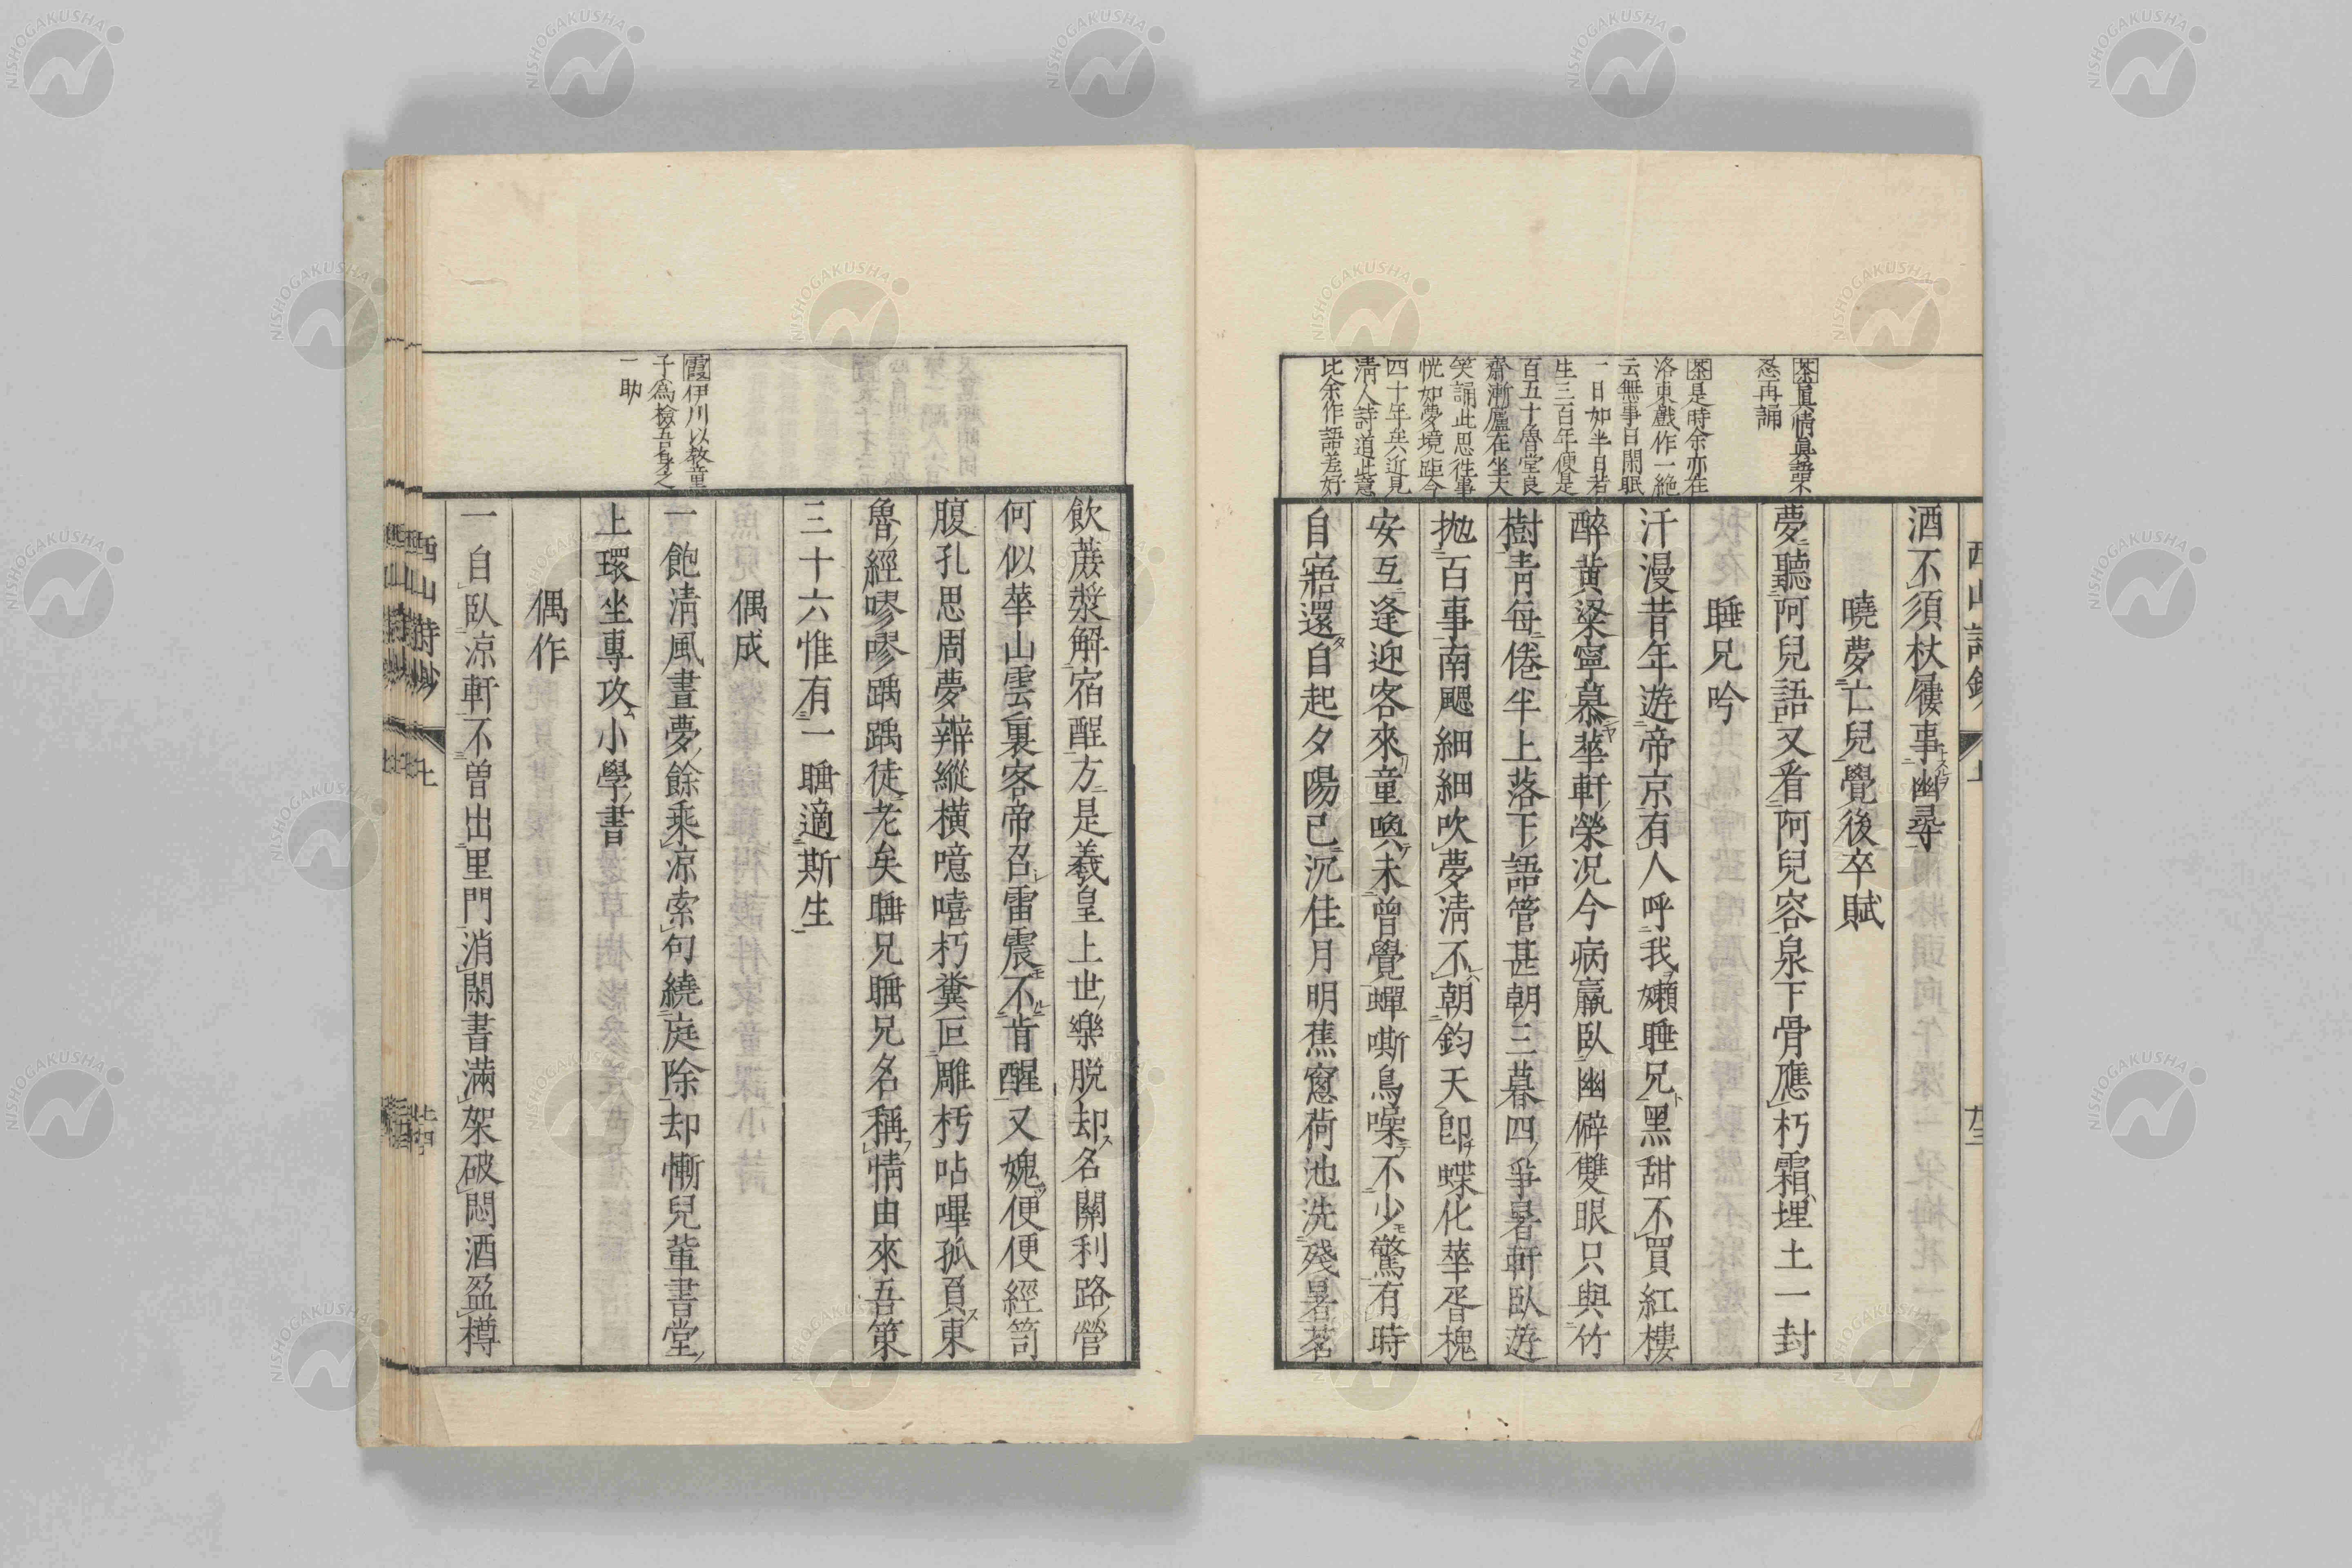 酒不須杖屨事幽尋
曉夢亡兒覺後卒賦
夢聽阿兒語又看阿兒容泉下骨應朽霜埋土一封
睡兄吟
汗漫昔年遊帝京有人呼我嬾睡兄黑甜不買紅樓
醉黃粱寧慕華軒榮況今病羸臥幽僻雙眼只與竹
樹靑每倦半上落下語管甚朝三暮四爭暑軒臥遊
抛百事南颸細細吹夢淸不朝鈞天卽蝶化華胥槐
安互逢迎客來童喚未曾覺蟬嘶鳥噪不少驚有時
自寤還自起夕陽已沉佳月明蕉窻荷池洗殘暑茗
茶眞情眞語不
忍再誦
茶是時余亦在
洛東戲作一絶
云無事日閑眠
一日如半日若
生三百年便是
百五十魯堂良
齋漸廬在坐大
笑誦此思徃事
恍如夢境距今
四十年矣近見
淸人詩道此意
比余作語差好
飮蔗漿解宿酲方是羲皇上世樂脱却名關利路營
何似華山雲裏客帝召雷震不肯醒又媿便便經笥
腹孔思周夢辨縱橫噫嘻朽糞叵雕杇呫嗶孤負東
魯經嘐嘐踽踽徒老矣睡兄睡兄名稱情由來吾策
三十六惟有一睡適斯生
偶成
一飽淸風晝夢餘乘凉索句繞庭除却慚兒輩書堂
上環坐專攻小學書
偶作
一自臥凉軒不曽出里門消閑書滿架破悶酒盈樽
霞伊川以敎童
子爲檢吾身之
一助
西山詩鈔